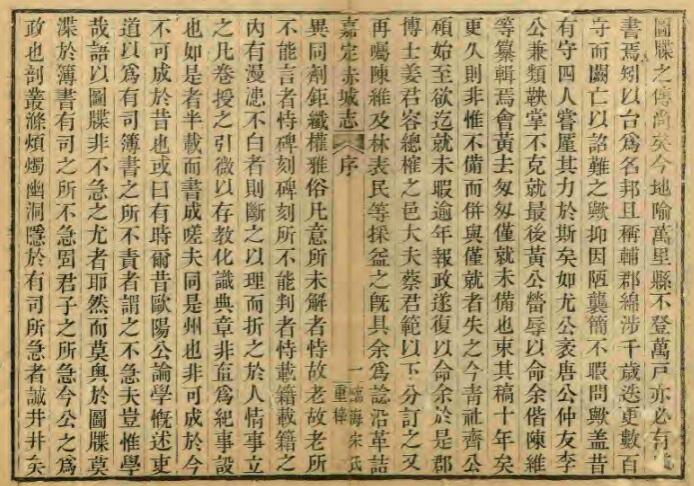 圖牒之傳尚矣今地喻萬里縣不登萬戸亦必有
書焉矧以台爲名邦且稱輔郡綿涉千歲迭更數百
守而闕亡以詔難之歟抑因陋襲簡不暇問歟盖昔
有守四人嘗厪其力於斯矣如尤公袤唐公仲友李
公兼類鞅掌不克就最後黃公㽦辱以命余偕陳維
等纂輯焉會黃去匆匆僅就未備也束其稿十年矣
更久則非惟不備而併與僅就者失之今青社齊公
碩始至欲迄就未暇逾年報政遂復以命余於是郡
博士姜君容總榷之邑大夫蔡君範以下分訂之又
再囑陳維及林表民等採益之旣具余爲諗沿革詰
嘉定赤城志
序
一
臨海宋氏
重梓
異同劑鉅纖權雅俗凡意所未解者恃故老故老所
不能言者恃碑刻碑刻所不能判者恃載籍載籍之
內有漫漶不白者則斷之以理而折之於人情事立
之凡卷授之引微以存敎化識典章非直爲紀事設
也如是者半載而書成嗟夫同是州也非可成於今
不可成於昔也或曰有時爾昔歐陽公論學慨述吏
道以爲有司簿書之所不責者謂之不急夫豈惟學
哉語以圖牒非不急之尤者耶然而莫與於圖牒莫
渫於簿書有司之所不急固君子之所急今公之爲
政也剖叢滌煩燭幽洞隱於有司所急者誠井井矣